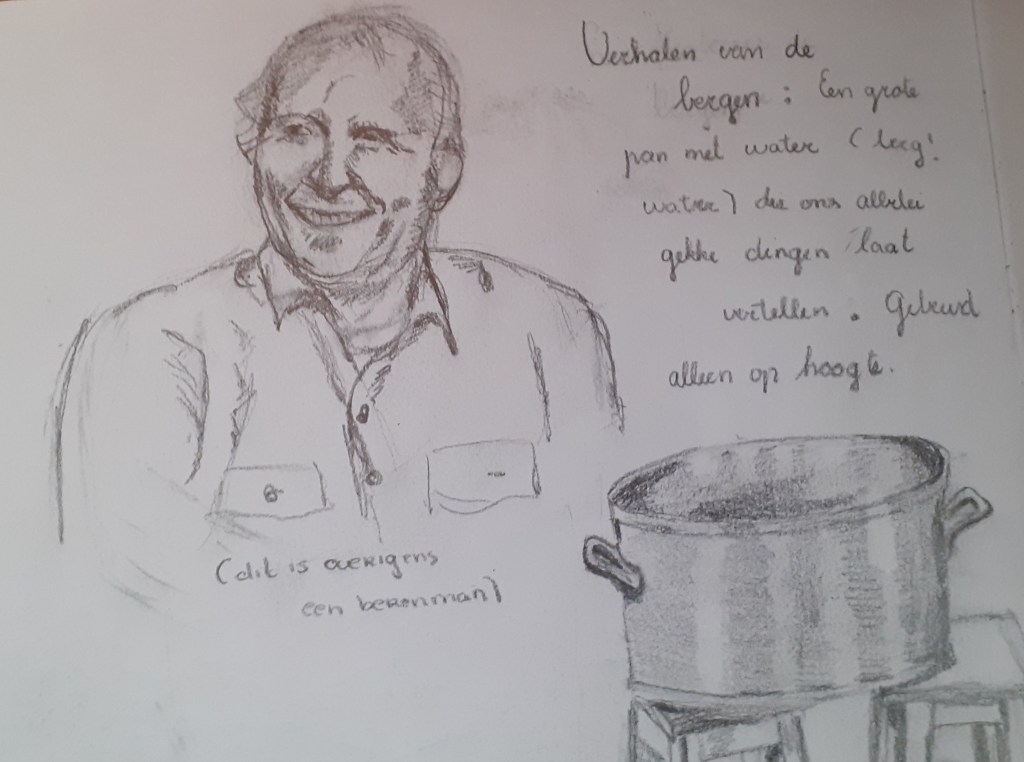 Verhalen van de
bergen : Een grote
pan met water (leeg!
water) die ons allelei
gekke dingen laat
vertellen. Gebeurd
alleen op hoogte.
(dit is overigens
een bermman)